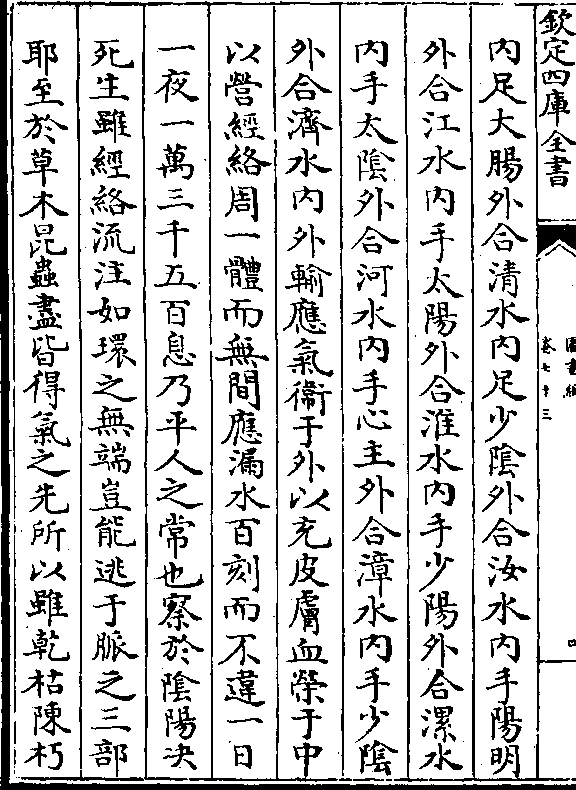 欽定四庫全書
圖書編
卷七十三
內足大腸外合清水內足少陰外合汝水內手陽明
外合江水內手太陽外合淮水內手少陽外合漯水
內手太陰外合河水內手心主外合漳水內手少陰
外合濟水內外輸應氣衞于外以充皮膚血榮于中
以營經絡周一體而無間應漏水百刻而不違一日
一夜一萬三千五百息乃平人之常也察於陰陽决
死生雖經絡流注如環之無端豈能逃于脈之三部
耶至於草木昆蟲盡皆得氣之先所以雖乾枯陳朽